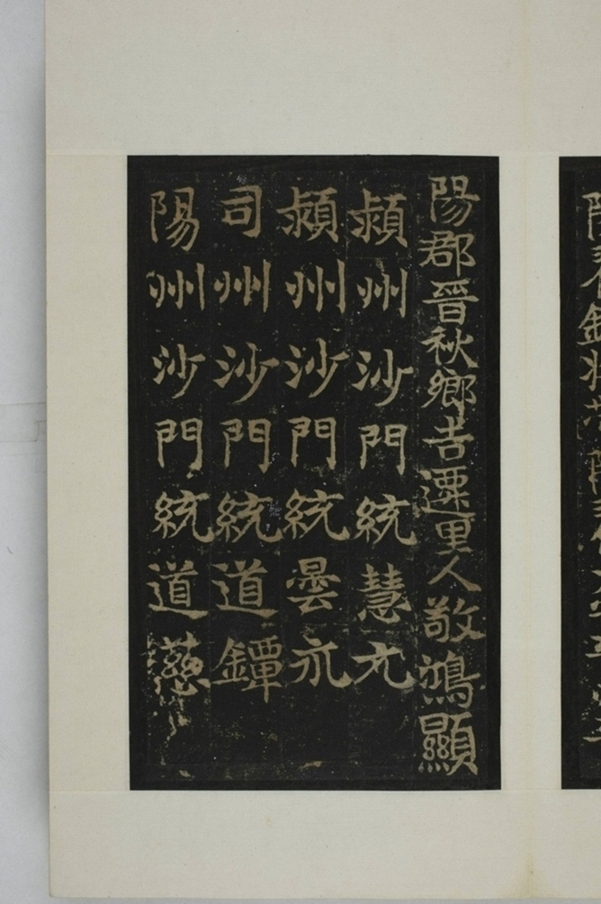 陽郡晉秋鄉吉遷里人敬鴻顯
潁州沙門統慧元
潁州沙門統曇亢
司州沙門統道鐔
陽州沙門統道慈